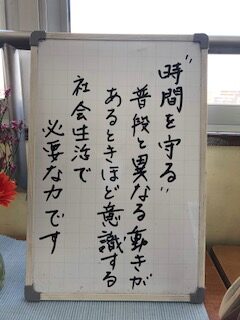 "時間を守る"
普段と異なる動きが
あるときほど意識する
社会生活で
必要な力です